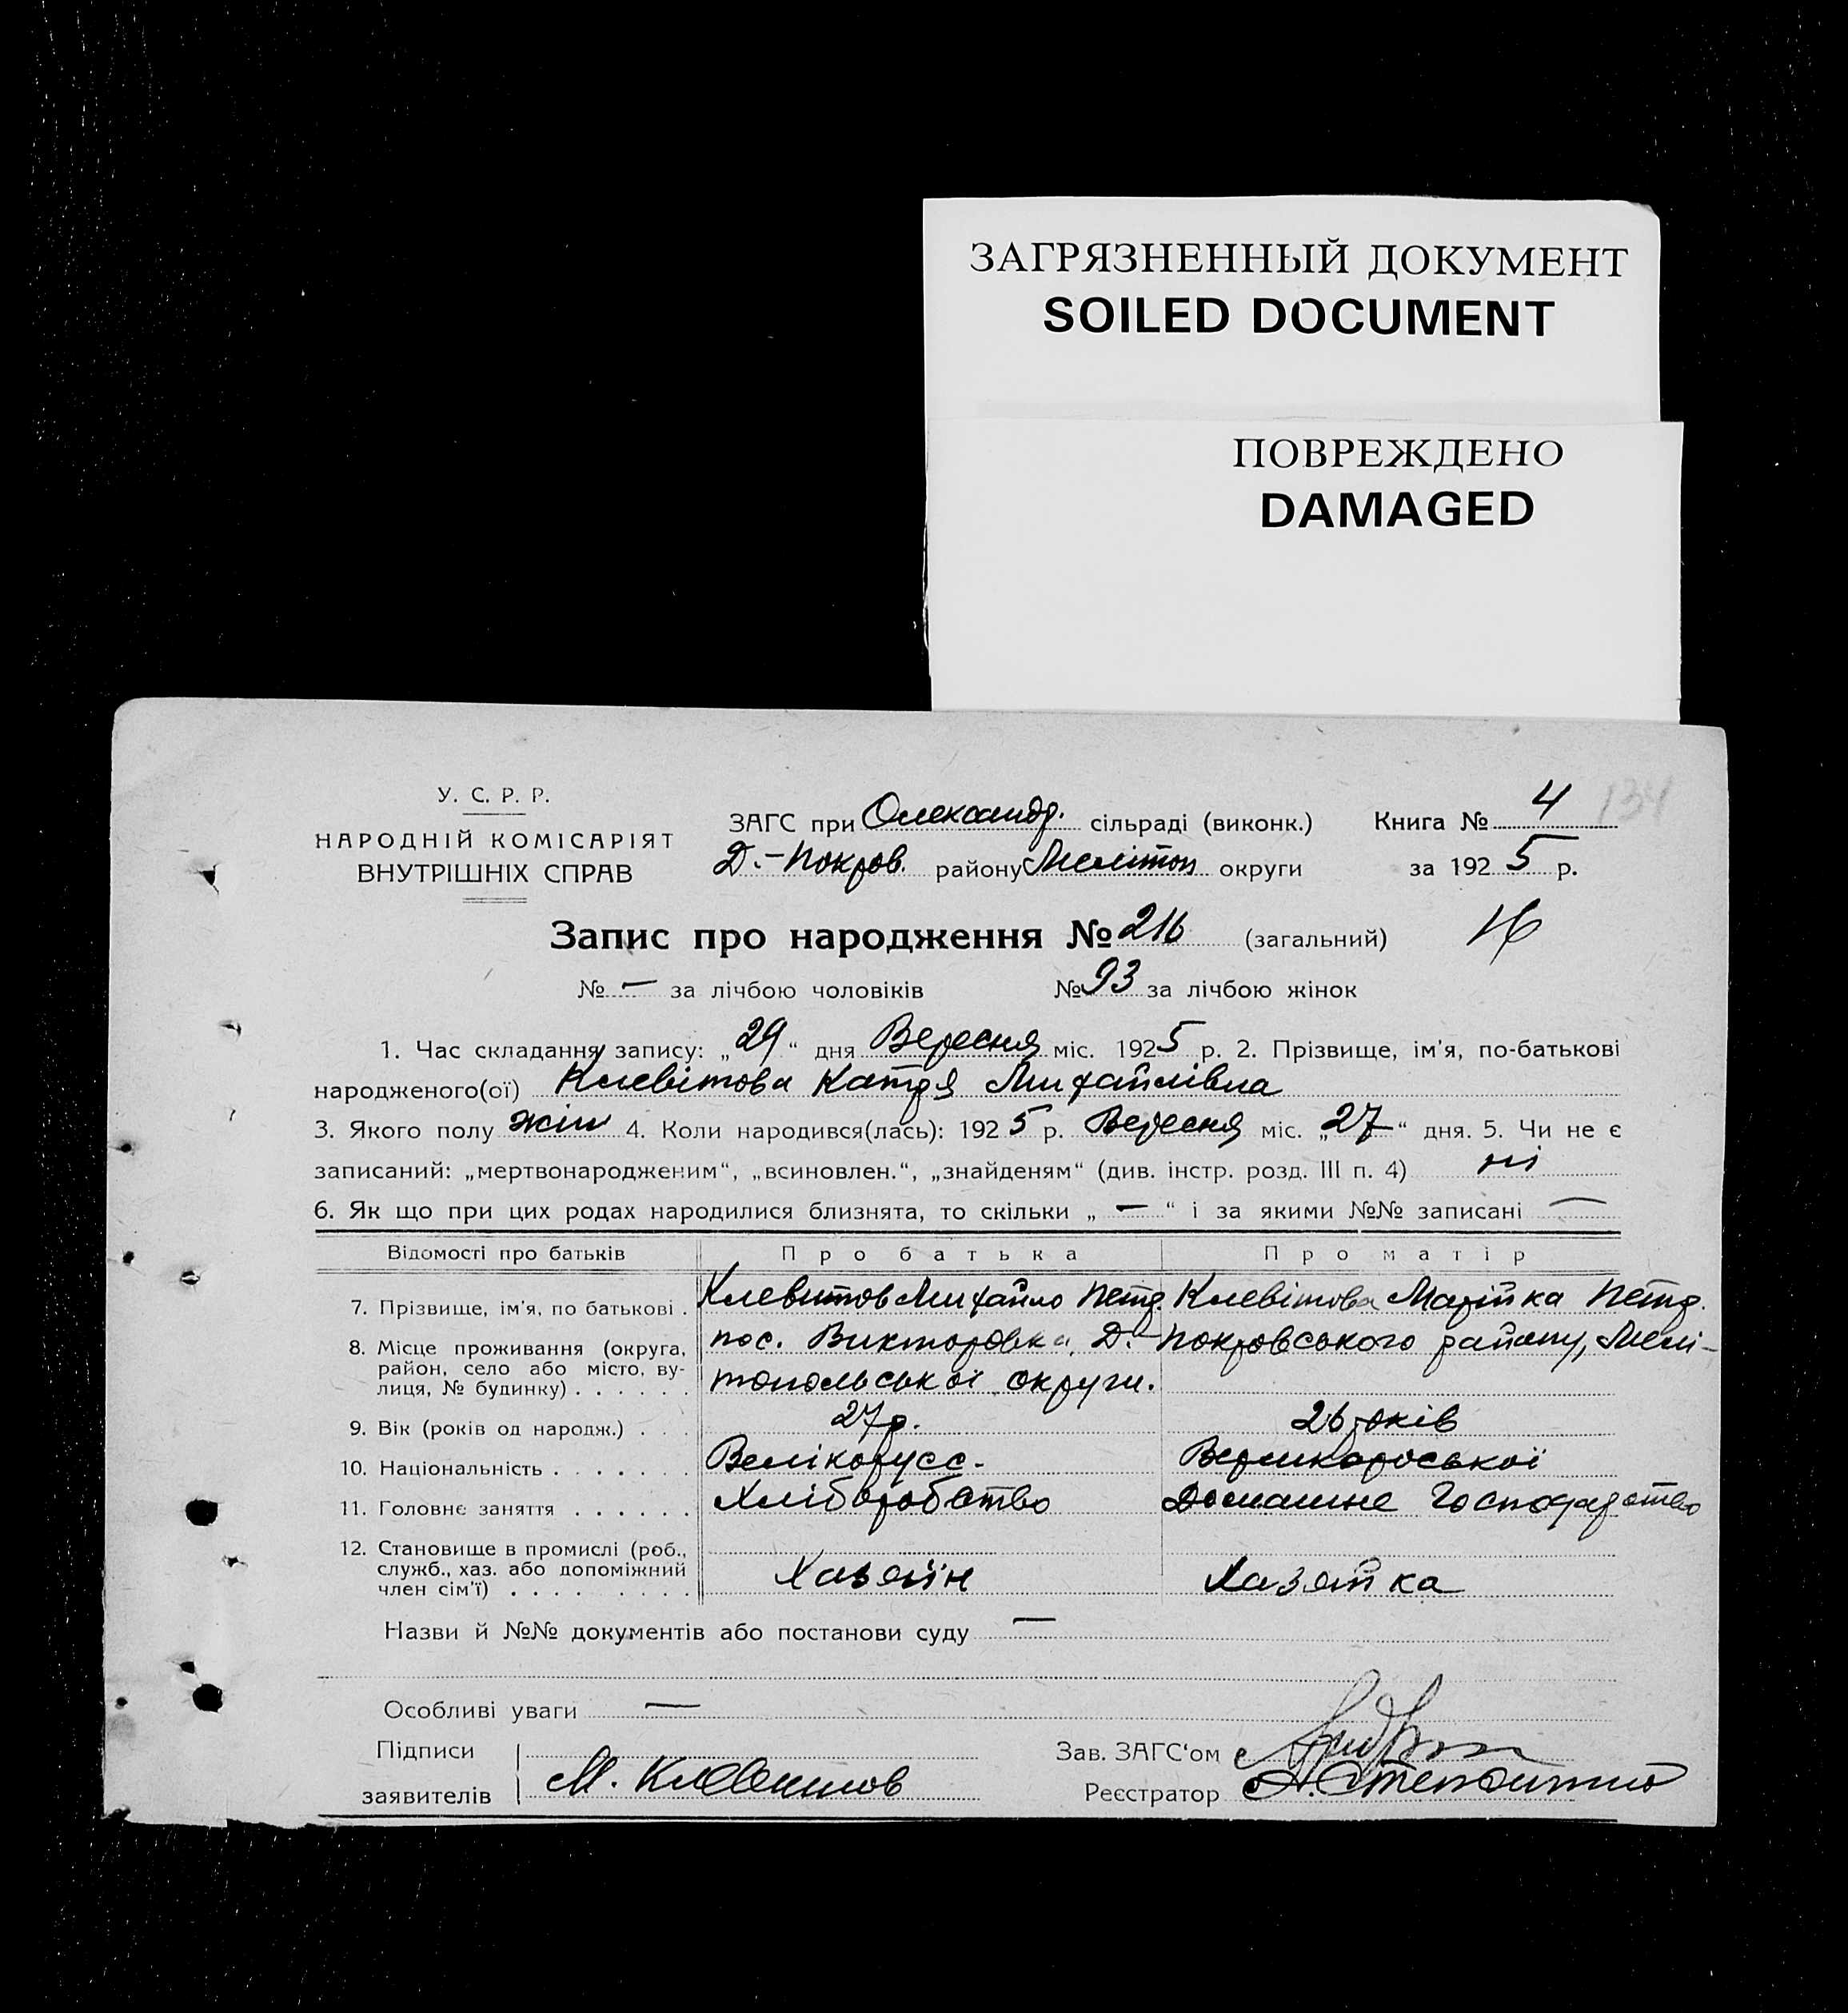 ЗАГРЯЗНЕННЫЙ ДОКУМЕНТ
SOILED DOCUMENT
ПОВРЕЖДЕНО
DAMAGED
У. С. Р. Р.
НАРОДНІЙ КОМІСАРІЯТ
ВНУТРІШНІХ СПРАВ
ЗАГС при Олександр. сільраді (виконк.)
Д.-Покров. району Мелітоп округи
Книга № 4 134
за 1925 р.
Запис про народження № 216 (загальний) 16
№ — за лічбою чоловіків № 93 за лічбою жінок
1. Час складання запису: „29“ дня Вересня міс. 1925 р. 2. Прізвище, ім'я, по-батькові
народженого(ої) Клевітова Катря Михайлівна
3. Якого полу жін 4. Коли народився(лась): 1925 р. Вересня міс. „27“ дня. 5. Чи не є
записаний: „мертвонародженим“, „всиновлен.“, „знайденям“ (див. інстр. розд. III п. 4) ні
6. Як що при цих родах народилися близнята, то скільки „—“ і за якими №№ записані —
Відомості про батьків Про батька Про матір
7. Прізвище, ім'я, по батькові . Клевитов Михайло Петр. Клевітова Марійка Петр.
8. Місце проживання (округа, район, село або місто, вулиця, № будинку) . . . . . . пос. Викторовка, Д.-Покровського району, Мелі-
топольської округи.
9. Вік (років од народж.) . . . 27 р. 26 років
10. Національність . . . . . . . Велікорусс. Великоросської
11. Головнє заняття . . . . . . Хліборобство Домашне Господарство
12. Становище в промислі (роб., служб., хаз. або допоміжний член сім'ї) . . . . . . . . Хазяїн Хазяйка
Назви й №№ документів або постанови суду —
Особливі уваги —
Підписи
заявителів М. Клевитов
Зав. ЗАГС'ом
Реєстратор